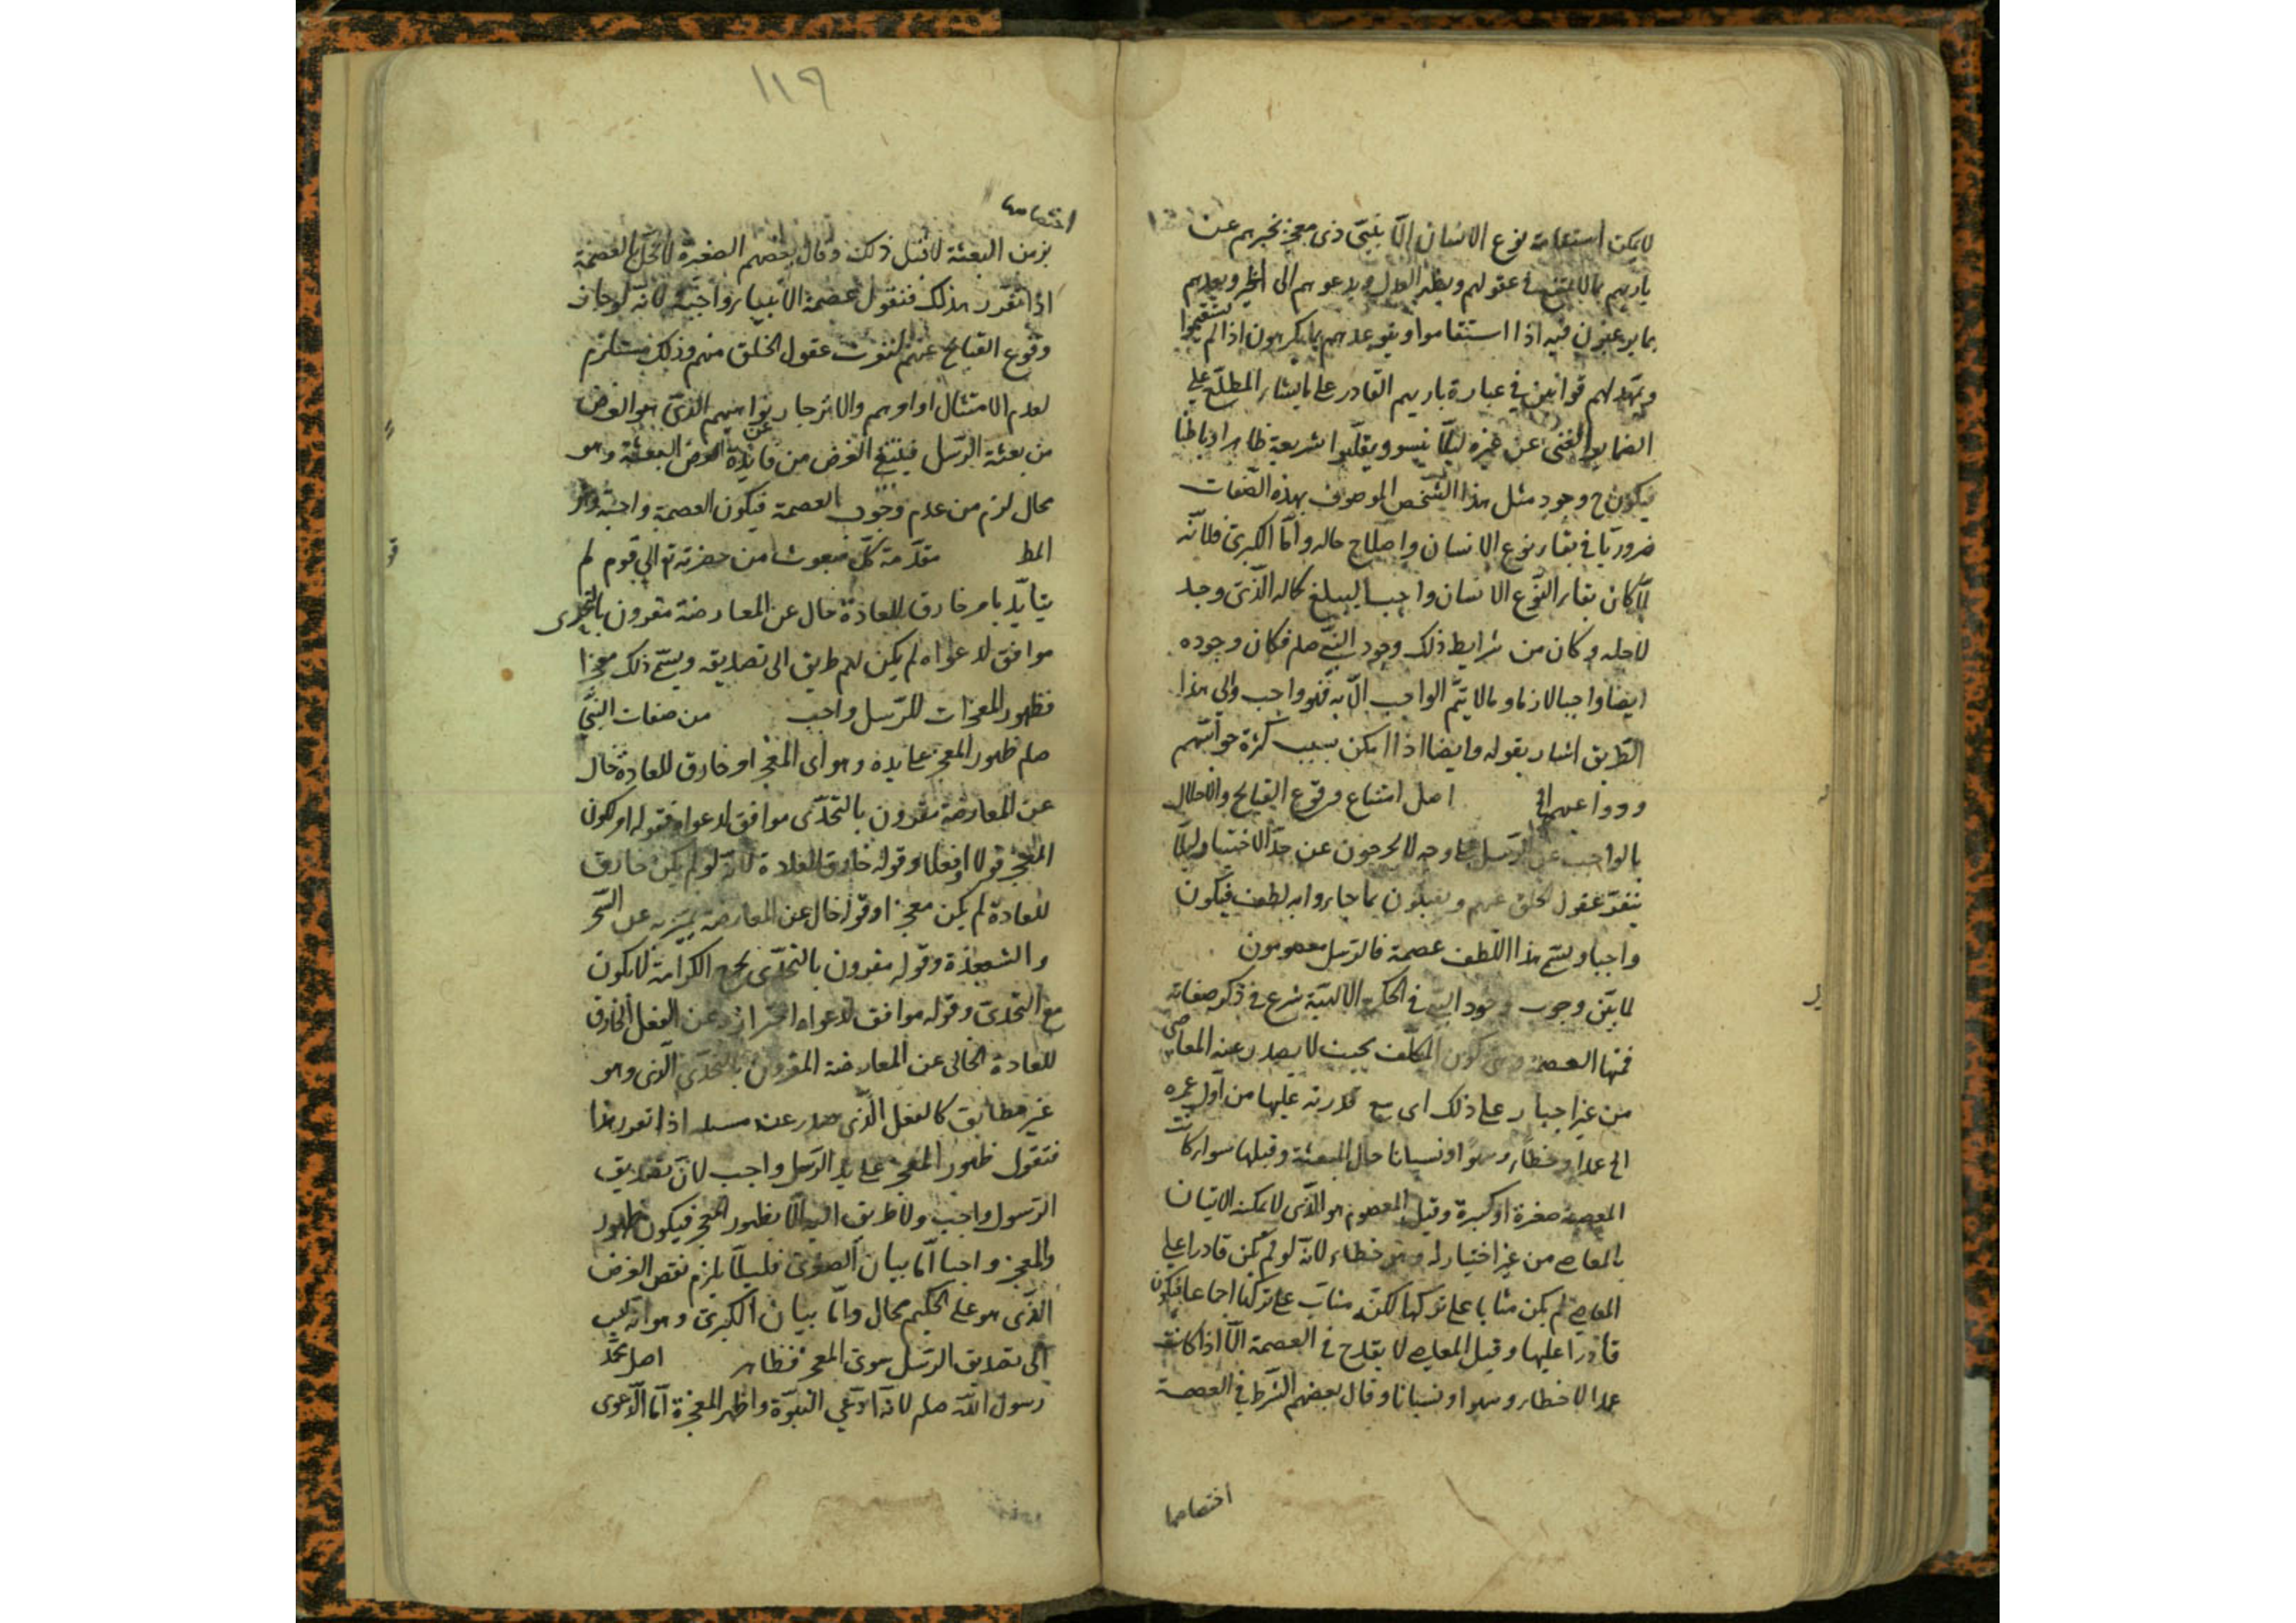 لا يمكن استقامة نوع الانسان الّا بنبيّ ذى معجز يخبرهم عن
باريهم بما لا يمتنع فى عقولهم ويظهر العدل ويدعوهم الى الخير ويعدهم
بما يرغبون فيه اذا استقاموا ويتوعدهم بما يكرهون اذا لم يستقيموا
ويمهّد لهم قوانين فى عبادة باريهم القادر على ما يشاء المطلع على
الضماير الغنى عن غيره ليلّا ينسوه ويقلبوا شريعة ظاهرا وباطنا
فيكون ح وجود مثل هذا الشخص الموصوف بهذه الصّفات
ضروريّا فى بقاء نوع الانسان واصلاح حاله وامّا الكبرى فلانّه
لمّا كان بقاء النّوع الانسان واجبا ليبلغ كماله الّذى وجد
لاجله وكان من شرايط ذلك وجود النبىّ صلم فكان وجوده
ايضا واجبا لازما وما لا يتمّ الواجب الّا به فهو واجب والى هذا
الطريق اشار بقوله وايضا اذا امكن بسبب كثرة حواسّهم
ودواعيهم الخ اصل امتناع وقوع القبايح والاخلال
بالواجب عن الرّسل على وجه لا يخرجون عن حدّ الاختيار ليلّا
ينفر عقول الخلق عنهم ويعملون بما جاءوا به لطف فيكون
واجبا ويسمّى هذا اللّطف عصمة فالرّسل معصومون
لمّا بيّن وجوب وجود النبىّ فى الحكمة الالهيّة شرع فى ذكر صفاته
فمنها العصمة وهى كون المكلّف بحيث لا يصدر عنه المعاصى
من غير اجبار على ذلك اى مع قدرته عليها من اوّل عمره
الخ عمدا وخطاء وسهوا ونسيانا حال البعثة وقبلها سواء كانت
المعصية صغيرة او كبيرة وقيل المعصوم هو الّذى لا يمكنه الاتيان
بالمعاصى من غير اختيار له وهو خطاء لانّه لو لم يكن قادرا على
المعاصى لم يكن مثابا على تركها لكنّه مثاب على تركها اجماعا فيكون
قادرا عليها وقيل المعاصى لا يقدح فى العصمة الّا اذا كانت
عمدا لا خطاء وسهوا ونسيانا وقال بعضهم الشرط فى العصمة
اختصاصها
١١٩
اختصاصها
بزمن البعثة لا قبل ذلك وقال بعضهم الصغيرة لا تخلّ العصمة
اذا تقرّر هذلك فنقول عصمة الانبياء واجبة لانّه لو جاز
وقوع القبايح عنهم لنفرت عقول الخلق منهم وذلك مستلزم
لعدم الامتثال اوامرهم والانزجار بنواهيهم الّذى هو الغرض
من بعثة الرّسل فينتفى الغرض من فايدة الغرض البعثة وهو
محال لزم من عدم وجوب العصمة فيكون العصمة واجبة وهو
المط مقدّمة كلّ مبعوث من حضرته تم الى قوم لم
يتأيّد بامر خارق للعادة خال عن المعارضة مقرون بالتحدى
موافق لدعواه لم يكن لهم طريق الى تصديقه ويسمّى ذلك معجزا
فظهور المعجزات للرّسل واجب من صفات النبىّ
صلم ظهور المعجز على يده وهو اى المعجز امر خارق للعادة خال
عن المعارضة مقرون بالتحدّى موافق لدعواه فقوله امر لكون
المعجز قولا او فعلا وقوله خارق للعادة لانّه لو لم يكن خارق
للعادة لم يكن معجزا وقوله خال عن المعارضة يميّزه عن السّحر
والشعبذة وقوله مقرون بالتحدّى يخرج الكرامة لا يكون
مع التحدّى وقوله موافق لدعواه احتراز عن الفعل الخارق
للعادة الخالى عن المعارضة المقرون بالتحدّى الّذى وهو
غير مطابق كالفعل الّذى صدر عن مسيلمه اذا تقرر هذا
فنقول ظهور المعجز على يد الرّسل واجب لانّ تصديق
الرّسول واجب ولا طريق اليه الّا بظهور المعجز فيكون ظهور
والمعجز واجبا امّا بيان الصغرى فليلّا يلزم نقض الغرض
الّذى هو على الحكيم محال وامّا بيان الكبرى وهو انّه ليس
الى تصديق الرّسل سوى المعجز فظاهر اصل محمّد
رسول اللّه صلم لانّه ادّعى النبوّة واظهر المعجزة امّا الدّعوى